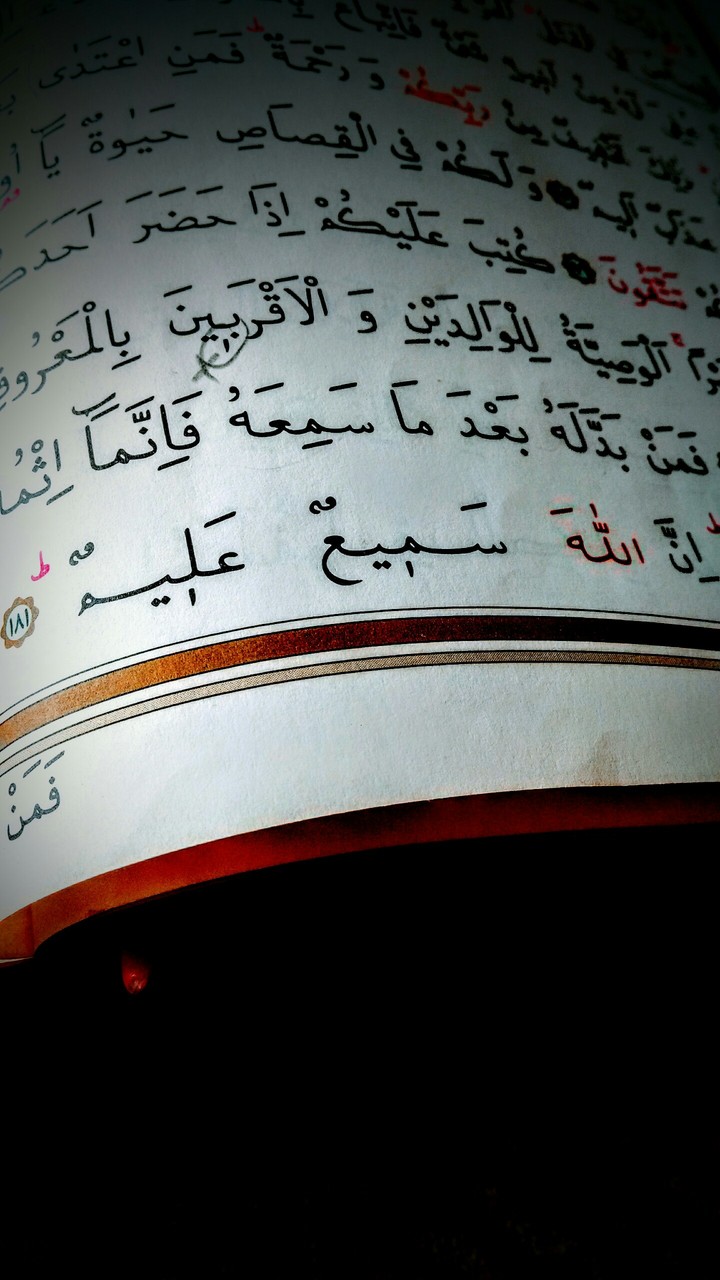 فَاتِّبَاعٌ
تَخْفِيفٌ مِنْ رَبِّكُمْ وَ رَحْمَةٌ ط فَمَنِ اعْتَدٰى
عَذَابٌ اَلِيمٌ وَ لَكُمْ فِي الْقِصَاصِ حَيٰوةٌ يَآ
تَتَّقُونَ كُتِبَ عَلَيْكُمْ اِذَا حَضَرَ اَحَدَكُ
الْوَصِيَّةُ لِلْوَالِدَيْنِ وَ الْاَقْرَبِينَ بِالْمَعْرُوفِ
فَمَنْ بَدَّلَهُ بَعْدَ مَا سَمِعَهُ فَاِنَّمَآ اِثْمُ
اِنَّ اللّٰهَ سَمِيعٌ عَلِيمٌ ط ١٨١
فَمَنْ